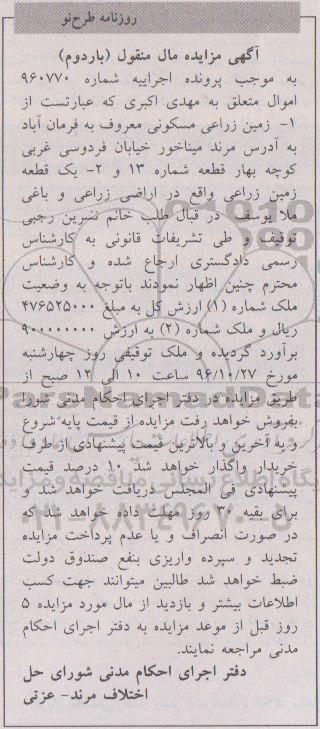 روزنامه طرح‌نو
آگهی مزایده مال منقول (باردوم)
به موجب پرونده اجراییه شماره ۹۶۰۷۷۰
اموال متعلق به مهدی اکبری که عبارتست از
۱- زمین زراعی مسکونی معروف به فرمان آباد
به آدرس مرند میناخور خیابان فردوسی غربی
کوچه بهار قطعه شماره ۱۳ و ۲- یک قطعه
زمین زراعی واقع در اراضی زراعی و باغی
ملا یوسف در قبال طلب خانم نسرین رجبی
توقیف و طی تشریفات قانونی به کارشناس
رسمی دادگستری ارجاع شده و کارشناس
محترم چنین اظهار نمودند باتوجه به وضعیت
ملک شماره (۱) ارزش کل به مبلغ ۴۷۶۵۲۵۰۰۰
ریال و ملک شماره (۲) به ارزش ۹۰۰۰۰۰۰۰۰
برآورد گردیده و ملک توقیفی روز چهارشنبه
مورخ ۹۶/۱۰/۲۷ ساعت ۱۰ الی ۱۲ صبح از
طریق مزایده در دفتر اجرای احکام مدنی شورا
بفروش خواهد رفت مزایده از قیمت پایه شروع
و به آخرین و بالاترین قیمت پیشنهادی از طرف
خریدار واگذار خواهد شد ۱۰ درصد قیمت
پیشنهادی فی المجلس دریافت خواهد شد و
برای بقیه ۳۰ روز مهلت داده خواهد شد که
در صورت انصراف و یا عدم پرداخت مزایده
تجدید و سپرده واریزی بنفع صندوق دولت
ضبط خواهد شد طالبین میتوانند جهت کسب
اطلاعات بیشتر و بازدید از مال مورد مزایده ۵
روز قبل از موعد مزایده به دفتر اجرای احکام
مدنی مراجعه نمایند.
دفتر اجرای احکام مدنی شورای حل
اختلاف مرند- عزتی